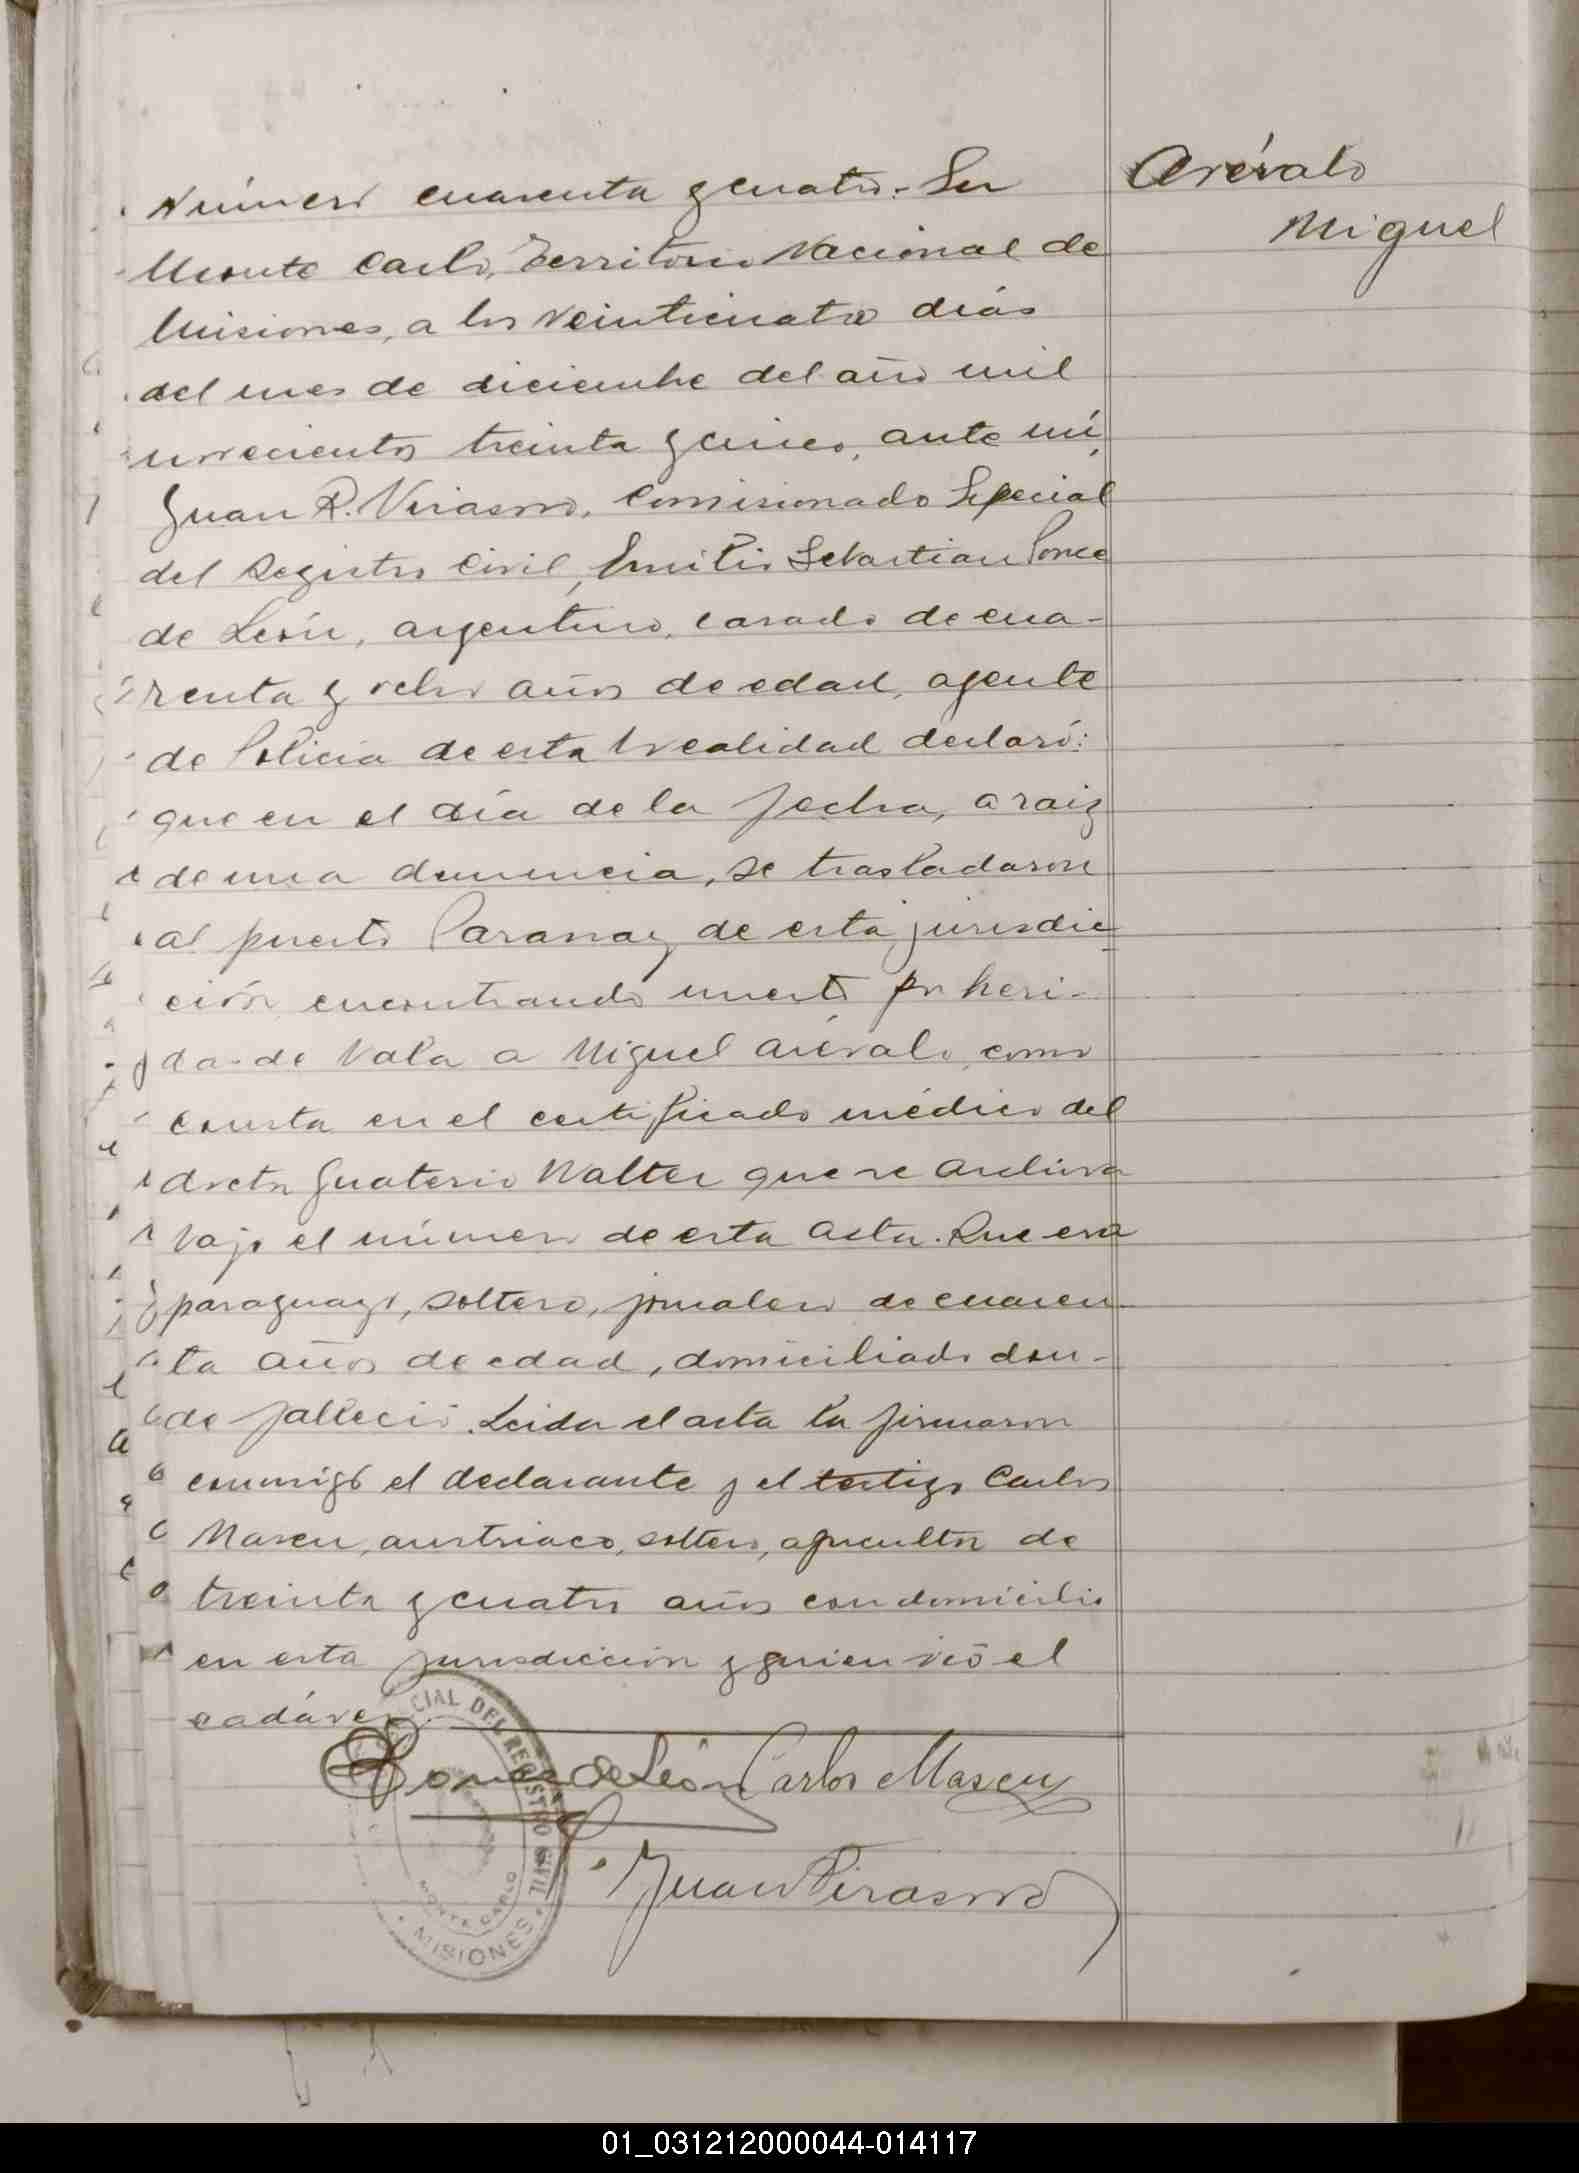 Número cuarenta y cuatro.- En
Monte Carlo, Territorio Nacional de
Misiones, a los veinticuatro días
del mes de diciembre del año mil
novecientos treinta y cinco, ante mí,
Juan R. Virasoro, Comisionado Especial
del Registro Civil, Emilio Sebastian Ponce
de León, argentino, casado de cua-
renta y ocho años de edad, agente
de Policía de esta localidad declaró:
que en el día de la fecha, a raiz
de una denuncia, se trasladaron
al puerto Paranay de esta jurisdic-
ción encontrando muerto por heri-
da de vala a Miguel Arévalo, como
consta en el certificado médico del
doctor Walter que se archiva
vajo el número de esta acta. Que era
paraguayo, soltero, jornalero de cuaren-
ta años de edad, domiciliado don-
de falleció. Leida el acta la firmaron
conmigo el declarante y el testigo Carlos
Maseu, austriaco, soltero, agricultor de
treinta y cuatro años con domicilio
en esta jurisdicción y quien vió el
cadáver.
Arévalo
Miguel
Ponce de León Carlos Maseu
Juan Virasoro
CIAL DEL REGISTRO CIVIL
MONTE CARLO
MISIONES
01_031212000044-014117